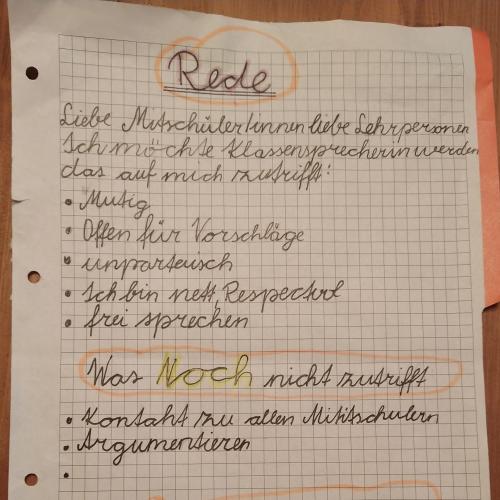 Rede
Liebe Mitschüler/innen liebe Lehrpersonen
Ich möchte Klassensprecherin werden
das auf mich zutrifft:
• Mutig
• Offen für Vorschläge
• unparteiisch
• Ich bin nett, Respectvol
• frei sprechen
Was Noch nicht zutrifft
• Kontakt zu allen Mititschülern
• Argumentieren
•